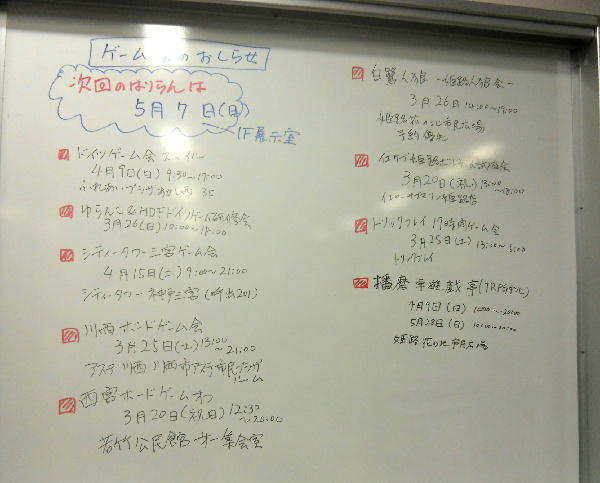 ゲーム会のおしらせ
次回のはりらんは
5月7日(日)
1F展示室
ドイツゲーム会 スマイル
4月9日(日) 9:30〜17:00
ふれあいプラザあかし西 3F
ゆらんこ&HDFドイツゲーム研修会
3月26(日) 10:00〜18:00
シティータワー三宮ゲーム会
4月15日(土) 9:00〜21:00
シティータワー神戸三宮 (呼出201)
川西ボードゲーム会
3月25日(土) 13:00
〜21:00
アステ川西 川西市アステ市民プラザ
ルーム
西宮ボードゲームオフ
3月20日(祝月) 12:30
〜20:00
若竹公民館 オ一集会室
白鷺人狼 -姫路人狼会-
3月26日 14:00〜19:00
姫路花の北市民広場
予約優先
イエサブ姫路ボードゲーム試遊会
3月20日(祝) 13:00
〜18:00
イエローサブマリン姫路店
トリックプレイ 17時間ゲーム会
3月25日(土) 13:00〜6:00
トリックプレイ
播磨卓遊戯亭(TRPGサークル)
4月9日(日) 10:00〜20:00
5月28日(日)
姫路 花の北市民広場